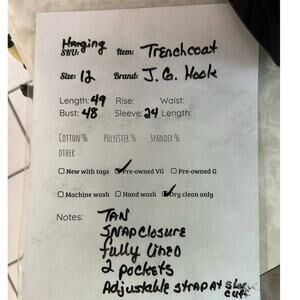 Hanging
SKU: Item: Trenchcoat
Size: 12 Brand: J. G. Hook
Length: 49 Rise: Waist:
Bust: 48 Sleeve: 24 Length:
COTTON % POLYESTER % SPANDEX %
OTHER:
☐ New with tags ☑ Pre-owned VG ☐ Pre-owned G
☐ Machine wash ☐ Hand wash ☑ Dry clean only
Notes: TAN
SNAP CLOSURE
fully LINED
2 pockets
Adjustable STRAP AT
cuff